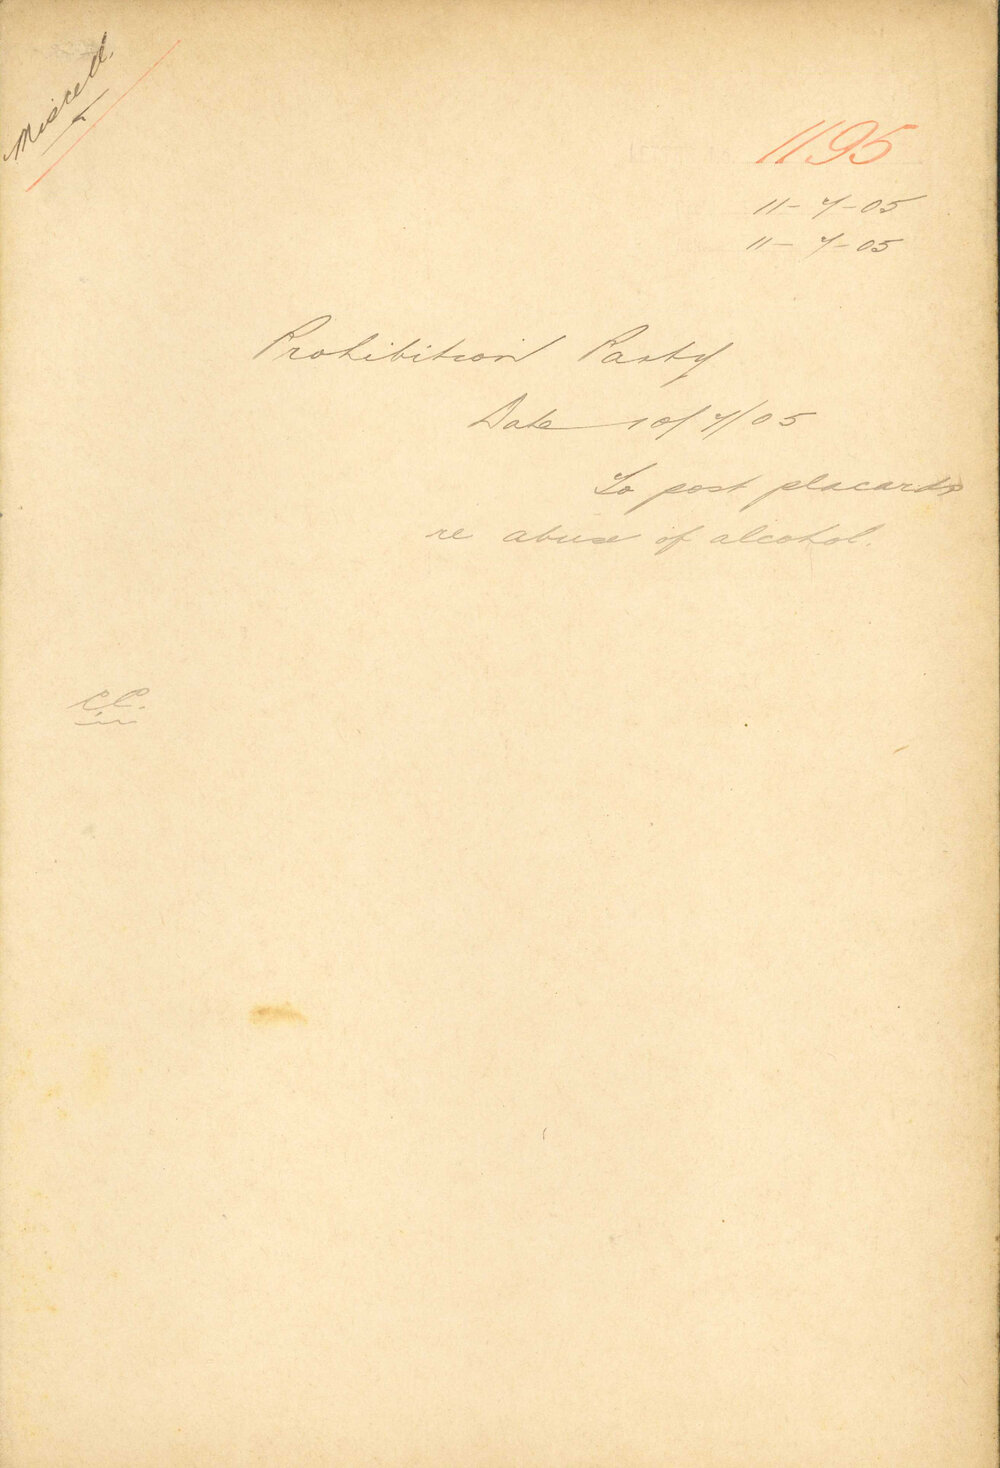 Miscell.
1195
11-7-05
11-7-05
Prohibition Party
Date 10/7/05
To post placards
re abuse of alcohol.
C.C.